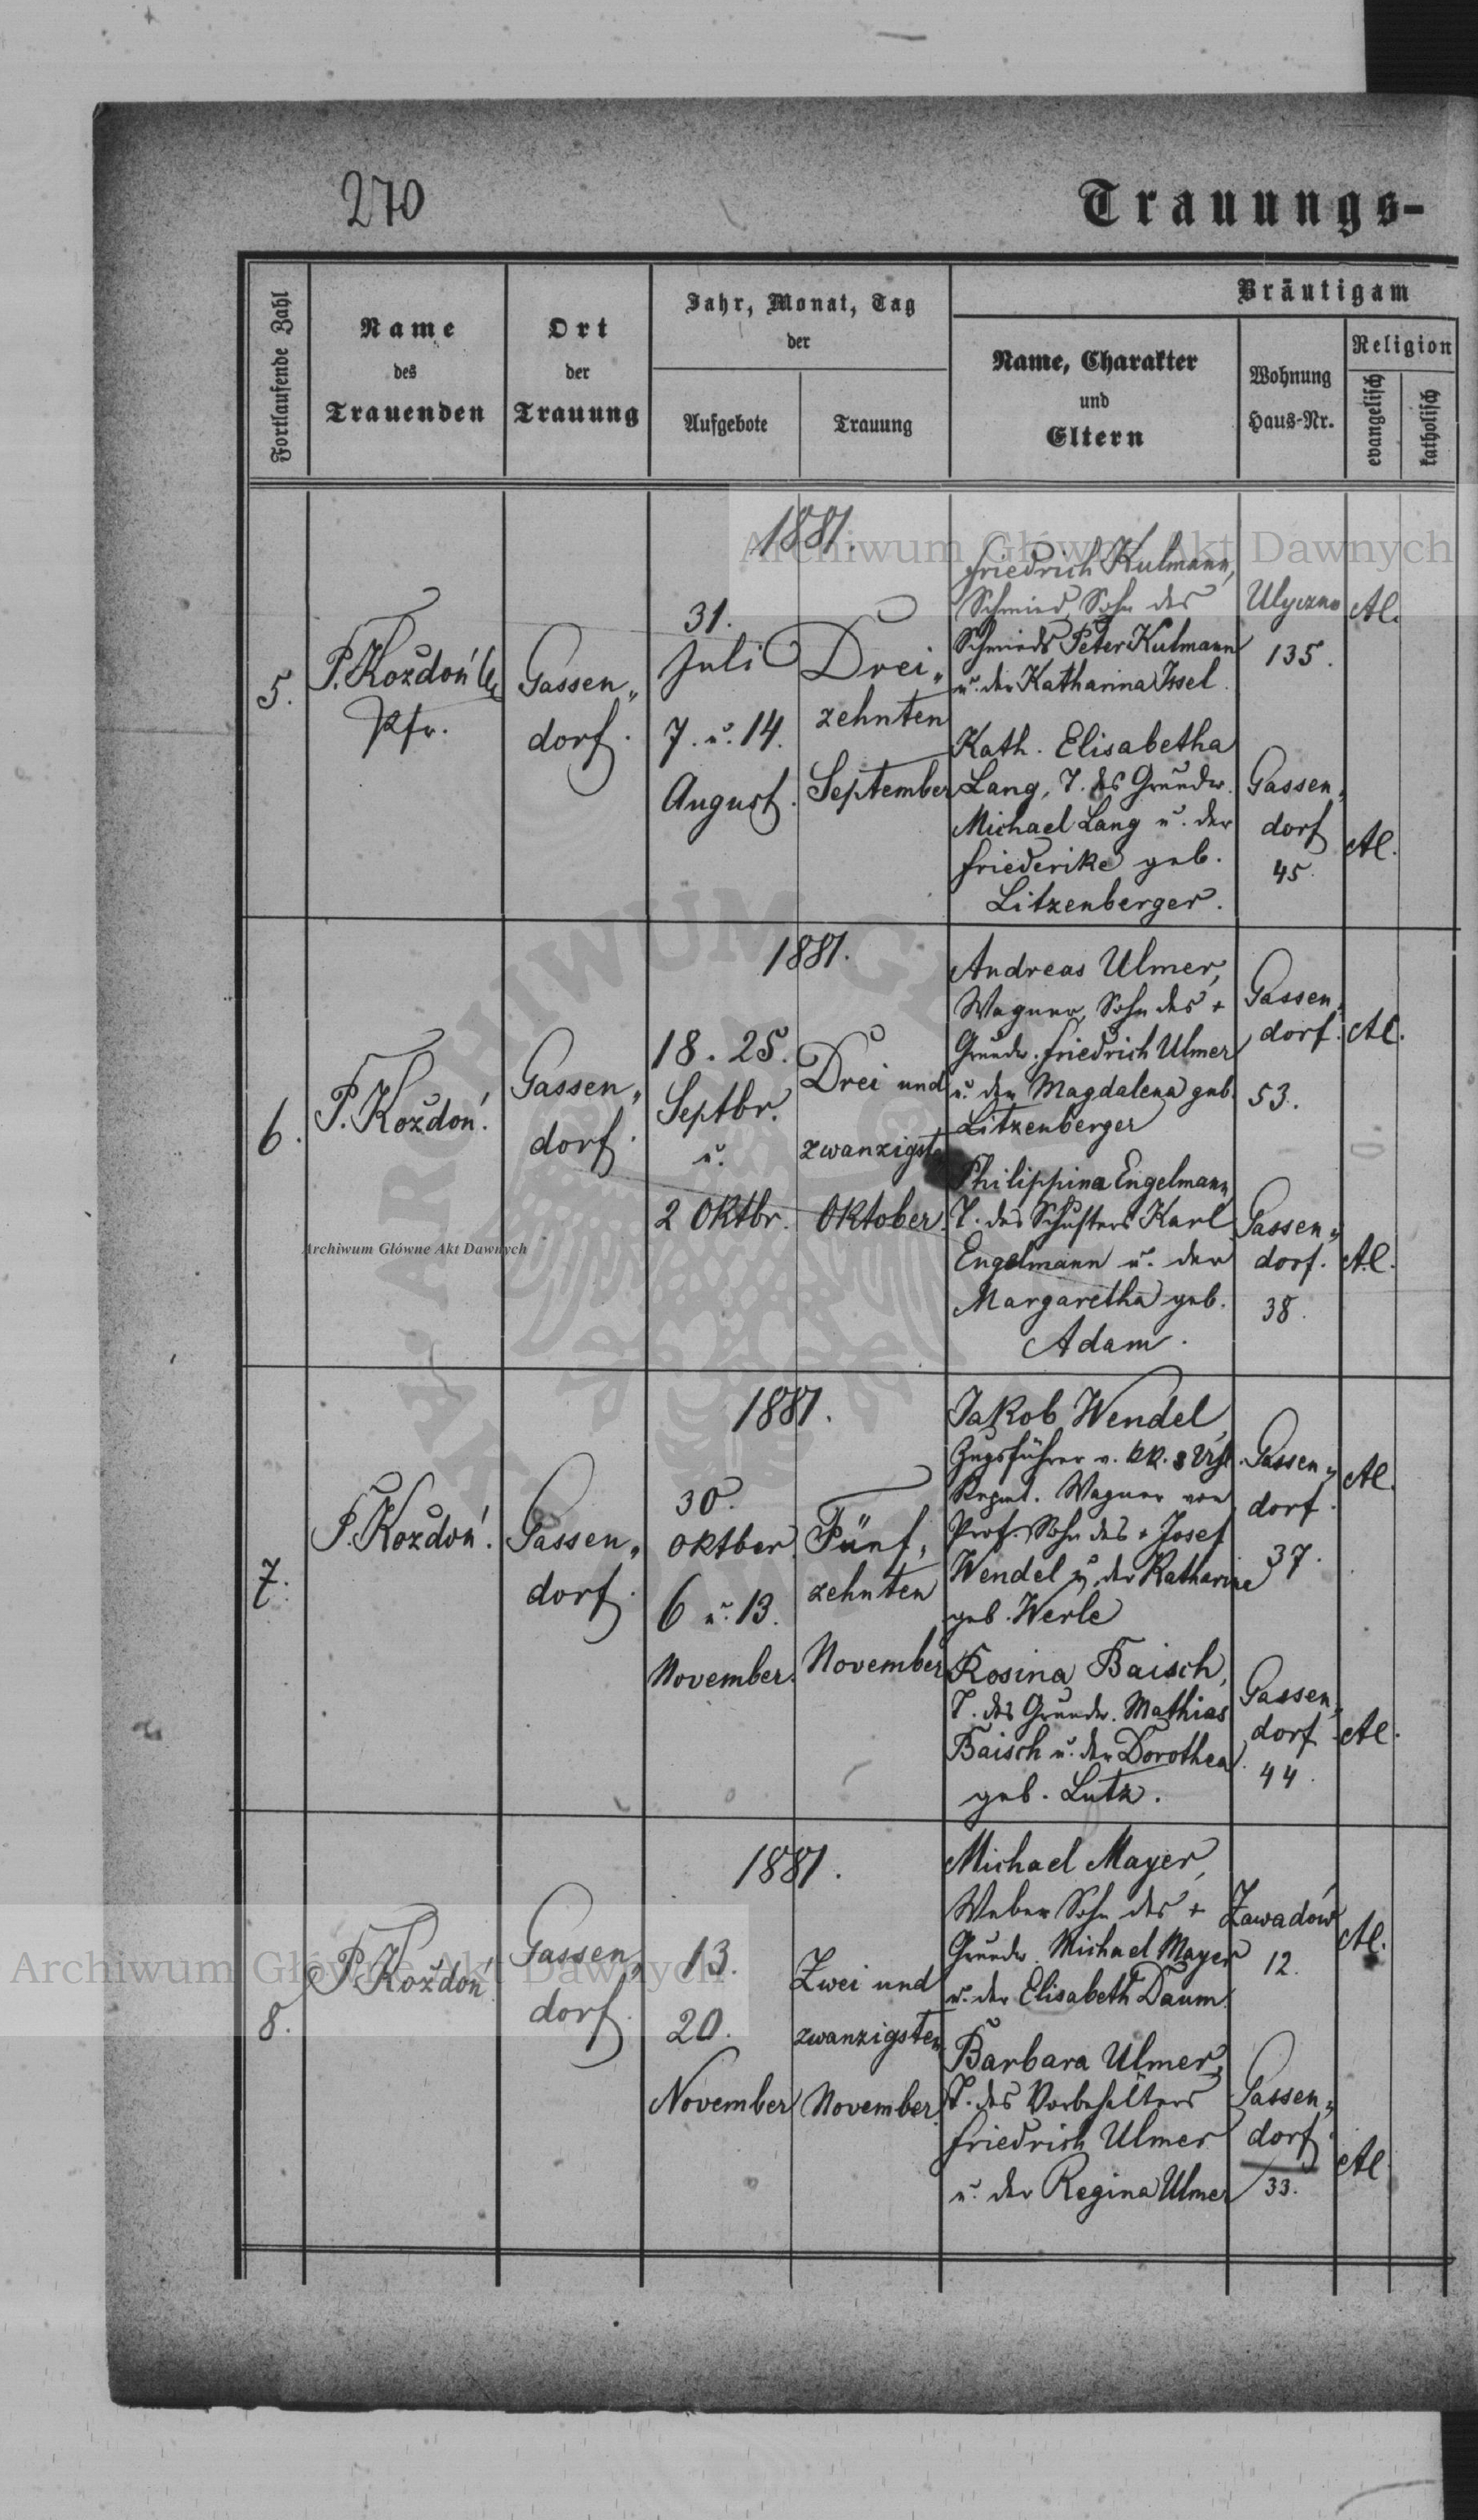 270
Trauungs-
Fortlaufende Zahl
Name
des
Trauenden
Ort
der
Trauung
Jahr, Monat, Tag
der
Aufgebote
Trauung
Bräutigam
Name, Charakter
und
Eltern
Wohnung
Haus-Nr.
Religion
evangelisch
katholisch
5.
P. Koždoń
Pfr.
Gassen„
dorf.
1881.
31.
Juli
7. u. 14.
August.
Drei„
zehnten
September
Friedrich Kulmann,
Schmied, Sohn des
Schmieds Peter Kulmann
u. der Katharina Issel.
Ulyczno
135.
A.C.
Kath. Elisabetha
Lang, T. des Grundw.
Michael Lang u. der
Friederike geb.
Litzenberger.
Gassen„
dorf
45.
A.C.
6.
P. Koždoń.
Gassen„
dorf.
1881.
18. 25.
Septbr.
u.
2 Oktbr.
Drei und
zwanzigsten
Oktober.
Andreas Ulmer,
Wagner, Sohn des +
Grundw. Friedrich Ulmer
u. der Magdalena geb.
Litzenberger
Gassen„
dorf.
53.
A.C.
Philippina Engelmann,
T. des Schusters Karl
Engelmann u. der
Margaretha geb.
Adam.
Gassen„
dorf.
38.
A.C.
7.
P. Koždoń.
Gassen„
dorf.
1881.
30.
Oktber.
6 u. 13.
November.
Fünf„
zehnten
November
Jakob Wendel,
Zugsführer v. kk. 8
Regmt. Wagner von
Prof. Sohn des + Josef
Wendel u. der Katharine
geb. Werle
Gassen„
dorf.
37.
A.C.
Rosina Baisch,
T. des Grundw. Mathias
Baisch u. der Dorothea
geb. Lutz.
Gassen„
dorf
44.
A.C.
8.
P. Koždoń
Gassen„
dorf.
1881.
13.
20.
November
Zwei und
zwanzigsten
November.
Michael Mayer,
Weber Sohn des +
Grundw. Michael Mayer
u. der Elisabeth Daum.
Zawadów
12.
A.C.
Barbara Ulmer,
T. des Vorbehälters
Friedrich Ulmer
u. der Regina Ulmer
Gassen„
dorf
33.
A.C.
Archiwum Główne Akt Dawnych
Archiwum Główne Akt Dawnych
Archiwum Główne Akt Dawnych